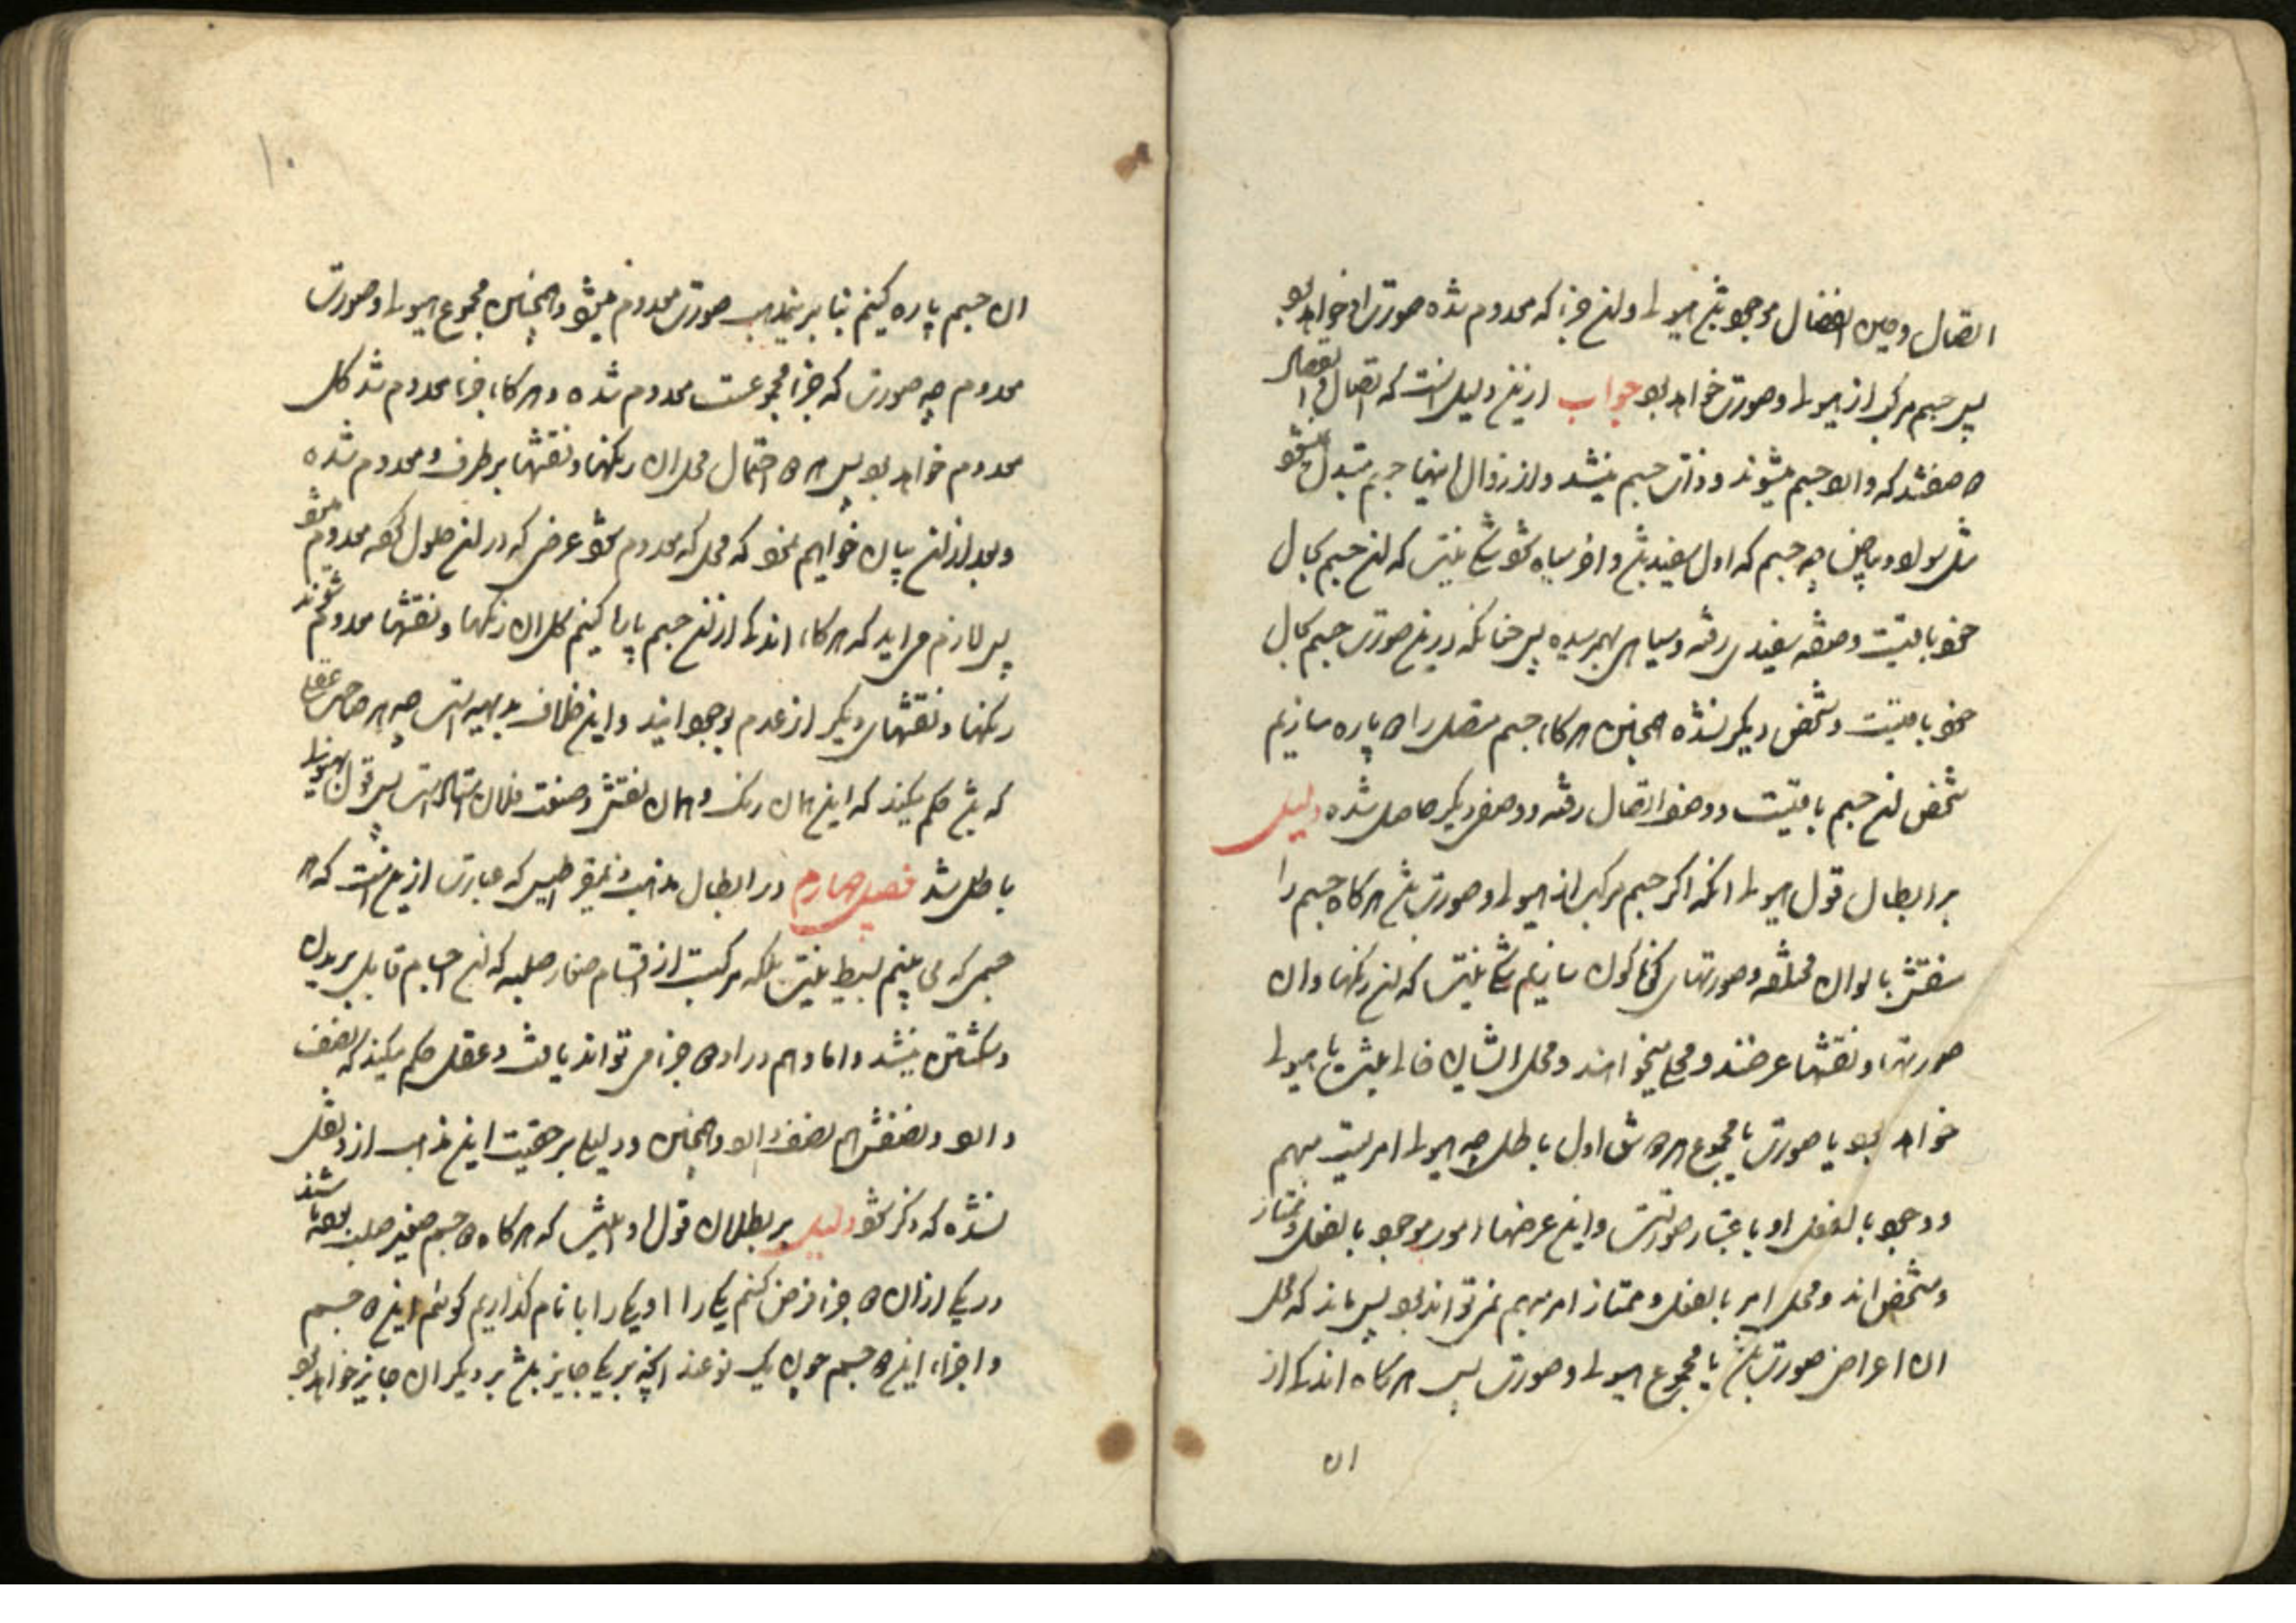 اتصال و حین انفصال موجود باشد هیولی و آن جزء که معدوم شده صورت او خواهد بود
پس جسم مرکب از هیولی و صورت خواهد بود جواب ازین دلیل اینست که اتصال و انفصال
دو صفتند که وارد جسم میشوند و ذات جسم نیستند و از زوال اینها جسم متبدل نمیشود
مثل سواد و بیاض چه جسم که اول سفید باشد و آخر سیاه شود شک نیست که آن جسم بحال
خود باقیست و صفة سفیدی رفته و سیاهی بهمرسیده پس چنانکه درین صورت جسم بحال
خود باقیست و شخص دیگر نشده همچنین هرگاه جسم متصل را دو پاره سازیم
شخص آن جسم باقیست و وصف اتصال رفته و وصف دیگر حاصل شده دلیل
بر ابطال قول هیولی آنکه اگر جسم مرکب از هیولی و صورت باشد هرگاه جسم را
منقش بالوان مختلفه و صورتهای گوناگون سازیم شک نیست که آن رنگها و آن
صورتها و نقشها عرضند و محلی میخواهند و محل ایشان خالی نیست یا هیولی
خواهد بود یا صورت یا مجموع هر دو شق اول باطلست چه هیولی امریست مبهم
و وجود بالفعل او باعتبار صورتست و این عرضها امور موجود بالفعل و ممتاز
و مشخص اند و محل امر بالفعل و ممتاز امر مبهم نمی تواند بود پس ماند که محل
ان اعراض صورت باشد یا مجموع هیولی و صورت پس هرگاه اندکی از
ان
۱۰
ان جسم پاره کنیم بنا برین مذهب صورت معدوم میشود و همچنین مجموع هیولی و صورت
معدوم چه صورت که جزء مجموعست معدوم شده و هرگاه جزء معدوم شد کل
معدوم خواهد بود پس هر دو احتمال محل ان رنگها و نقشها برطرف و معدوم شده
و بعد ازان بیان خواهیم نمود که محل که معدوم شود عرضی که در آن حلول کرده معدوم میشود
پس لازم می اید که هرگاه اندکی ازان جسم پاره کنیم کل ان رنگها و نقشها معدوم شوند
رنگها و نقشهای دیگر از عدم بوجود ایند و این خلاف بدیهه است چه هر صاحب عقلی
که باشد حکم میکند که این همان رنگ و همان نقش و صنعت فلان استاد است پس قول بهیولی
باطل شد فصل چهارم در ابطال مذهب ذیمقراطیس که عبارت ازین است که هر
جسمی که می بینیم بسیط نیست بلکه مرکبست از اقسام صغار صلبه که آن اجسام قابل بریدن
و شکستن نیستند و اما وهم در او دو جزء می تواند یافت و عقل حکم میکند که نصف
دارد و نصفش هم نصف دارد و همچنین و دلیلی بر حقیت این مذهب از او نقل
نشده که ذکر شود دلیل بر بطلان قول او اینست که هرگاه دو جسم صغیر صلب بوده باشند
در یکی ازان دو جزء فرض کنیم یکی را ا و یکی را با نام گذاریم گوئیم این دو جسم
و اجزاء این دو جسم چون یک نوعند انچه بر یکی جایز باشد بر دیگر ان جایز خواهد بود